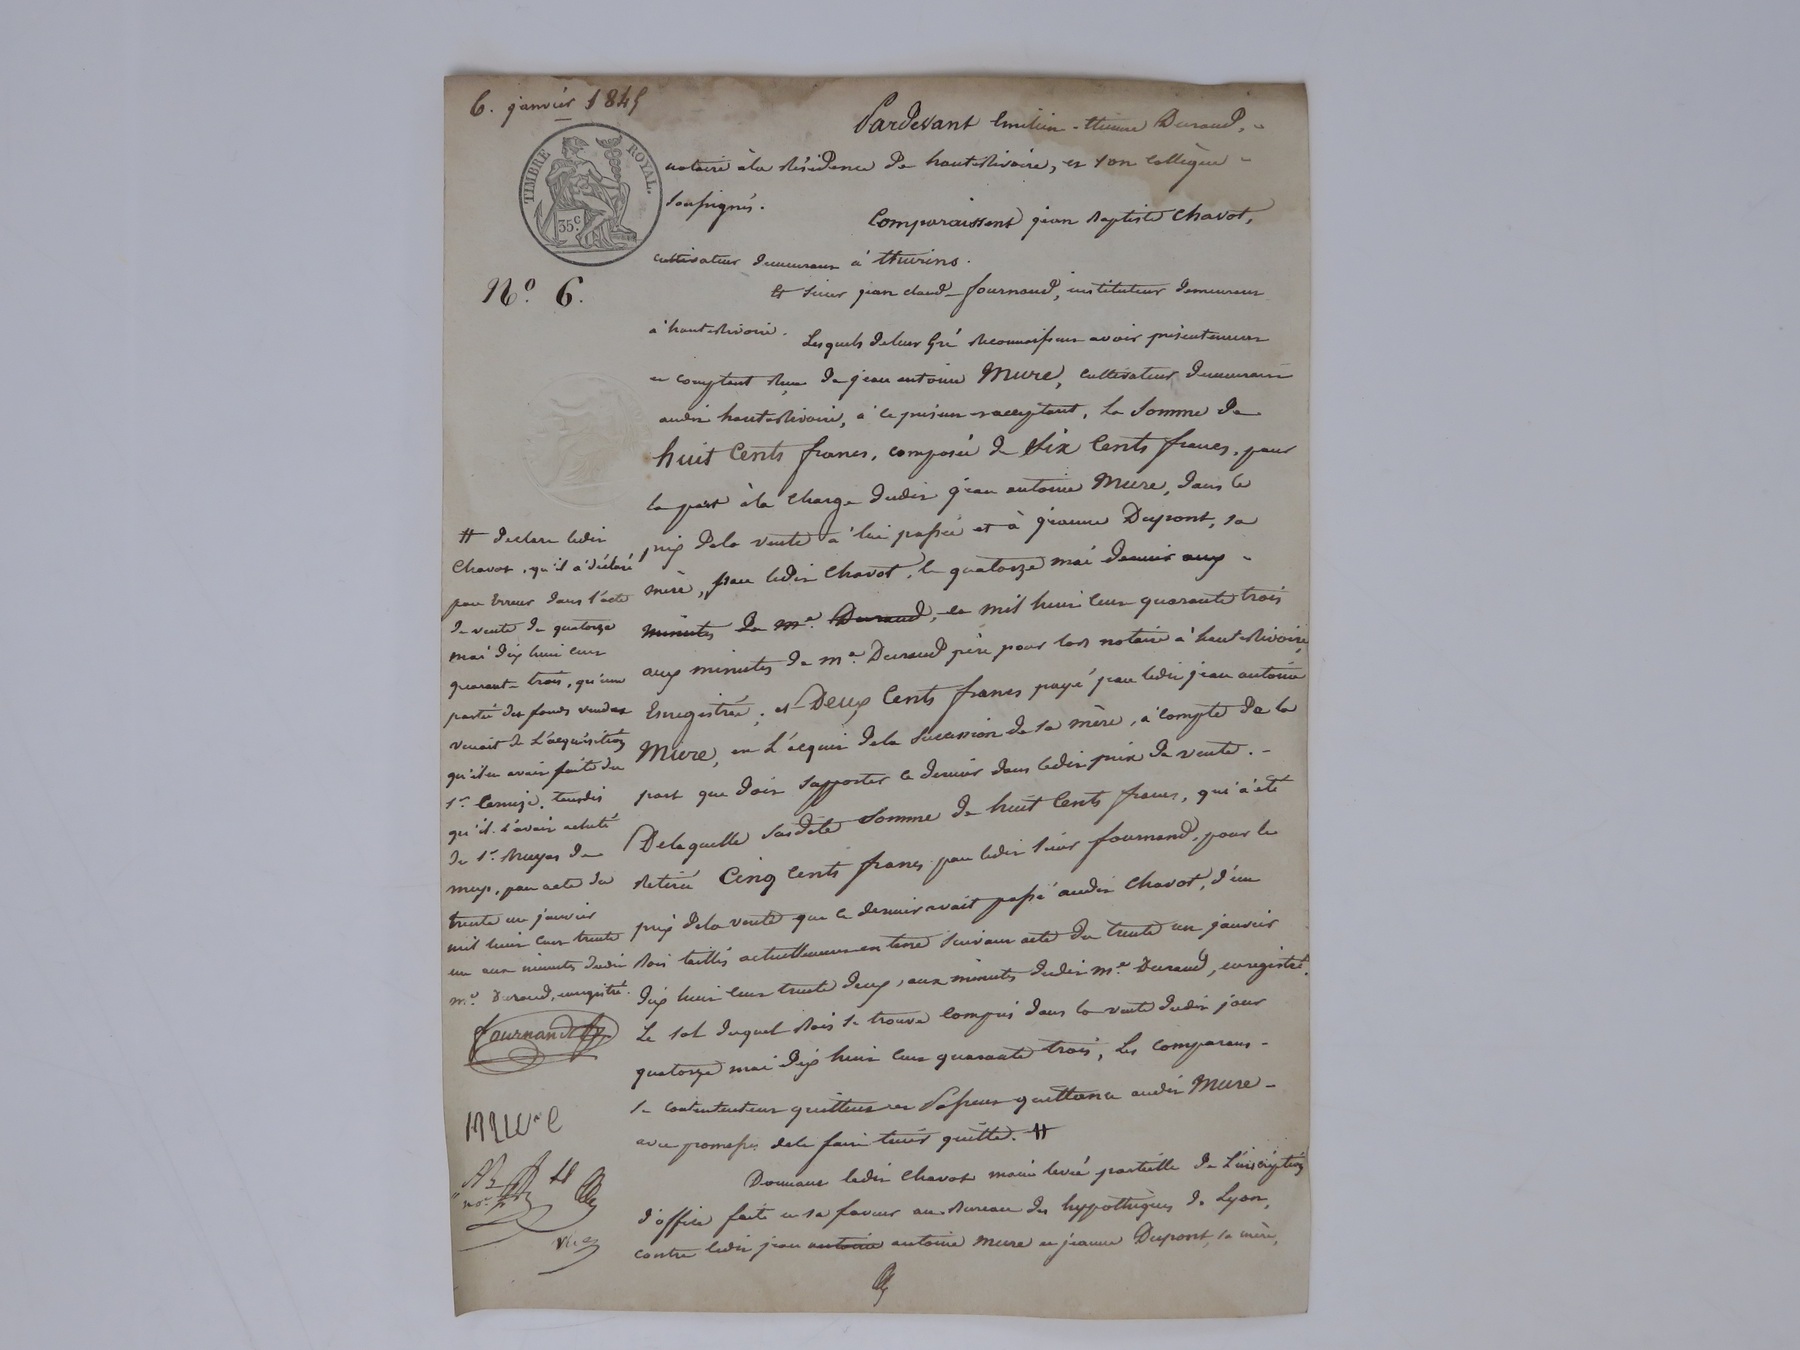 6. janvier 1845
TIMBRE ROYAL.
35c
No. 6.
Pardevant Emilien-Etienne Durand,
notaire à la Résidence de hauterivoire, et son collègue
soussignés.
Comparaissent jean Baptiste Chavot,
cultivateur demeurant à thurins.
Et sieur jean claud-fournand, instituteur demeurant
à hauterivoire.
Lesquels de leur Gré Reconnaissent avoir présentement
en comptant Reçu de jean antoine Mure, cultivateur demeurant
audit hauterivoire, à ce présent acceptant, la Somme de
huit Cents francs, composée de Six Cents francs, pour
la part à la charge dudit jean antoine Mure, dans le
prix dela vente à lui passée et à jeanne Dupont, sa
mère, par ledit Chavot, le quatorze mai dernier aux
minutes de me. Durand, mil huit cent quarante trois
aux minutes de me. Durand père pour lors notaire à hauterivoire,
Enregistrée; et Deux Cents francs payé par ledit jean antoine
Mure, en l'acquit dela Succession de sa mère, à compte de la
part que doit supporter ce dernier dans ledit prix de vente.
Delaquelle susdite Somme de huit Cents francs, qui a été
Retiré Cinq Cents francs par ledit sieur fournand, pour le
prix dela vente que ce dernier avait passé audit Chavot, d'un
Bois taillis actuellement en terre suivant acte du trente un janvier
dix huit cent trente deux, aux minutes dudit me. Durand, enregistré.
Le sol duquel Bois se trouve compris dans la vente dudit jour
quatorze mai dix huit cent quarante trois, Les comparans
se contentent quittent et Passent quittance audit Mure
avec promesse dele faire tenir quitte. #
Donnant ledit Chavot main levée partielle de L'inscription
d'office faite en sa faveur au Bureau des hypothèques de Lyon,
contre ledit jean antoine antoine Mure et jeanne Dupont, sa mère,
# declare ledit
Chavot, qu'il a déclaré
par Erreur dans l'acte
de vente du quatorze
mai dix huit cent
quarante-trois, qu'une
partie des fonds vendus
venait de L'acquisition
qu'il en avait faite du
sr. tandis
qu'il l'avait acheté
de sr. de
par acte du
trente un janvier
mil huit cent trente
un aux minutes dudit
me. Durand, enregistré.
fournand
Mure